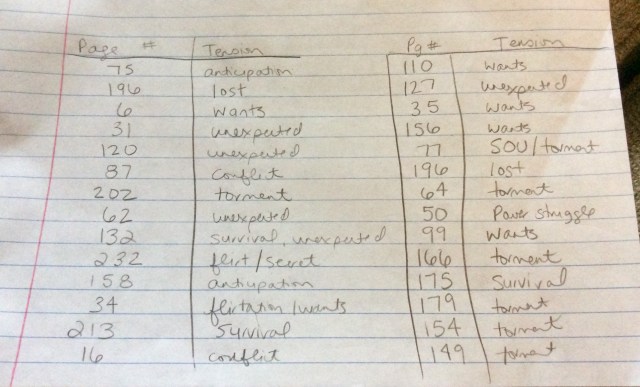 Page # Tension Pg # Tension
75 anticipation 110 wants
196 lost 127 unexpected
6 wants 35 wants
31 unexpected 156 wants
120 unexpected 77 SOU/torment
87 conflict 196 lost
202 torment 64 torment
62 unexpected 50 Power struggle
132 survival, unexpected 99 wants
232 flirt/secret 166 torment
158 anticipation 175 Survival
34 flirtation/wants 179 torment
213 Survival 154 torment
16 conflict 149 torment